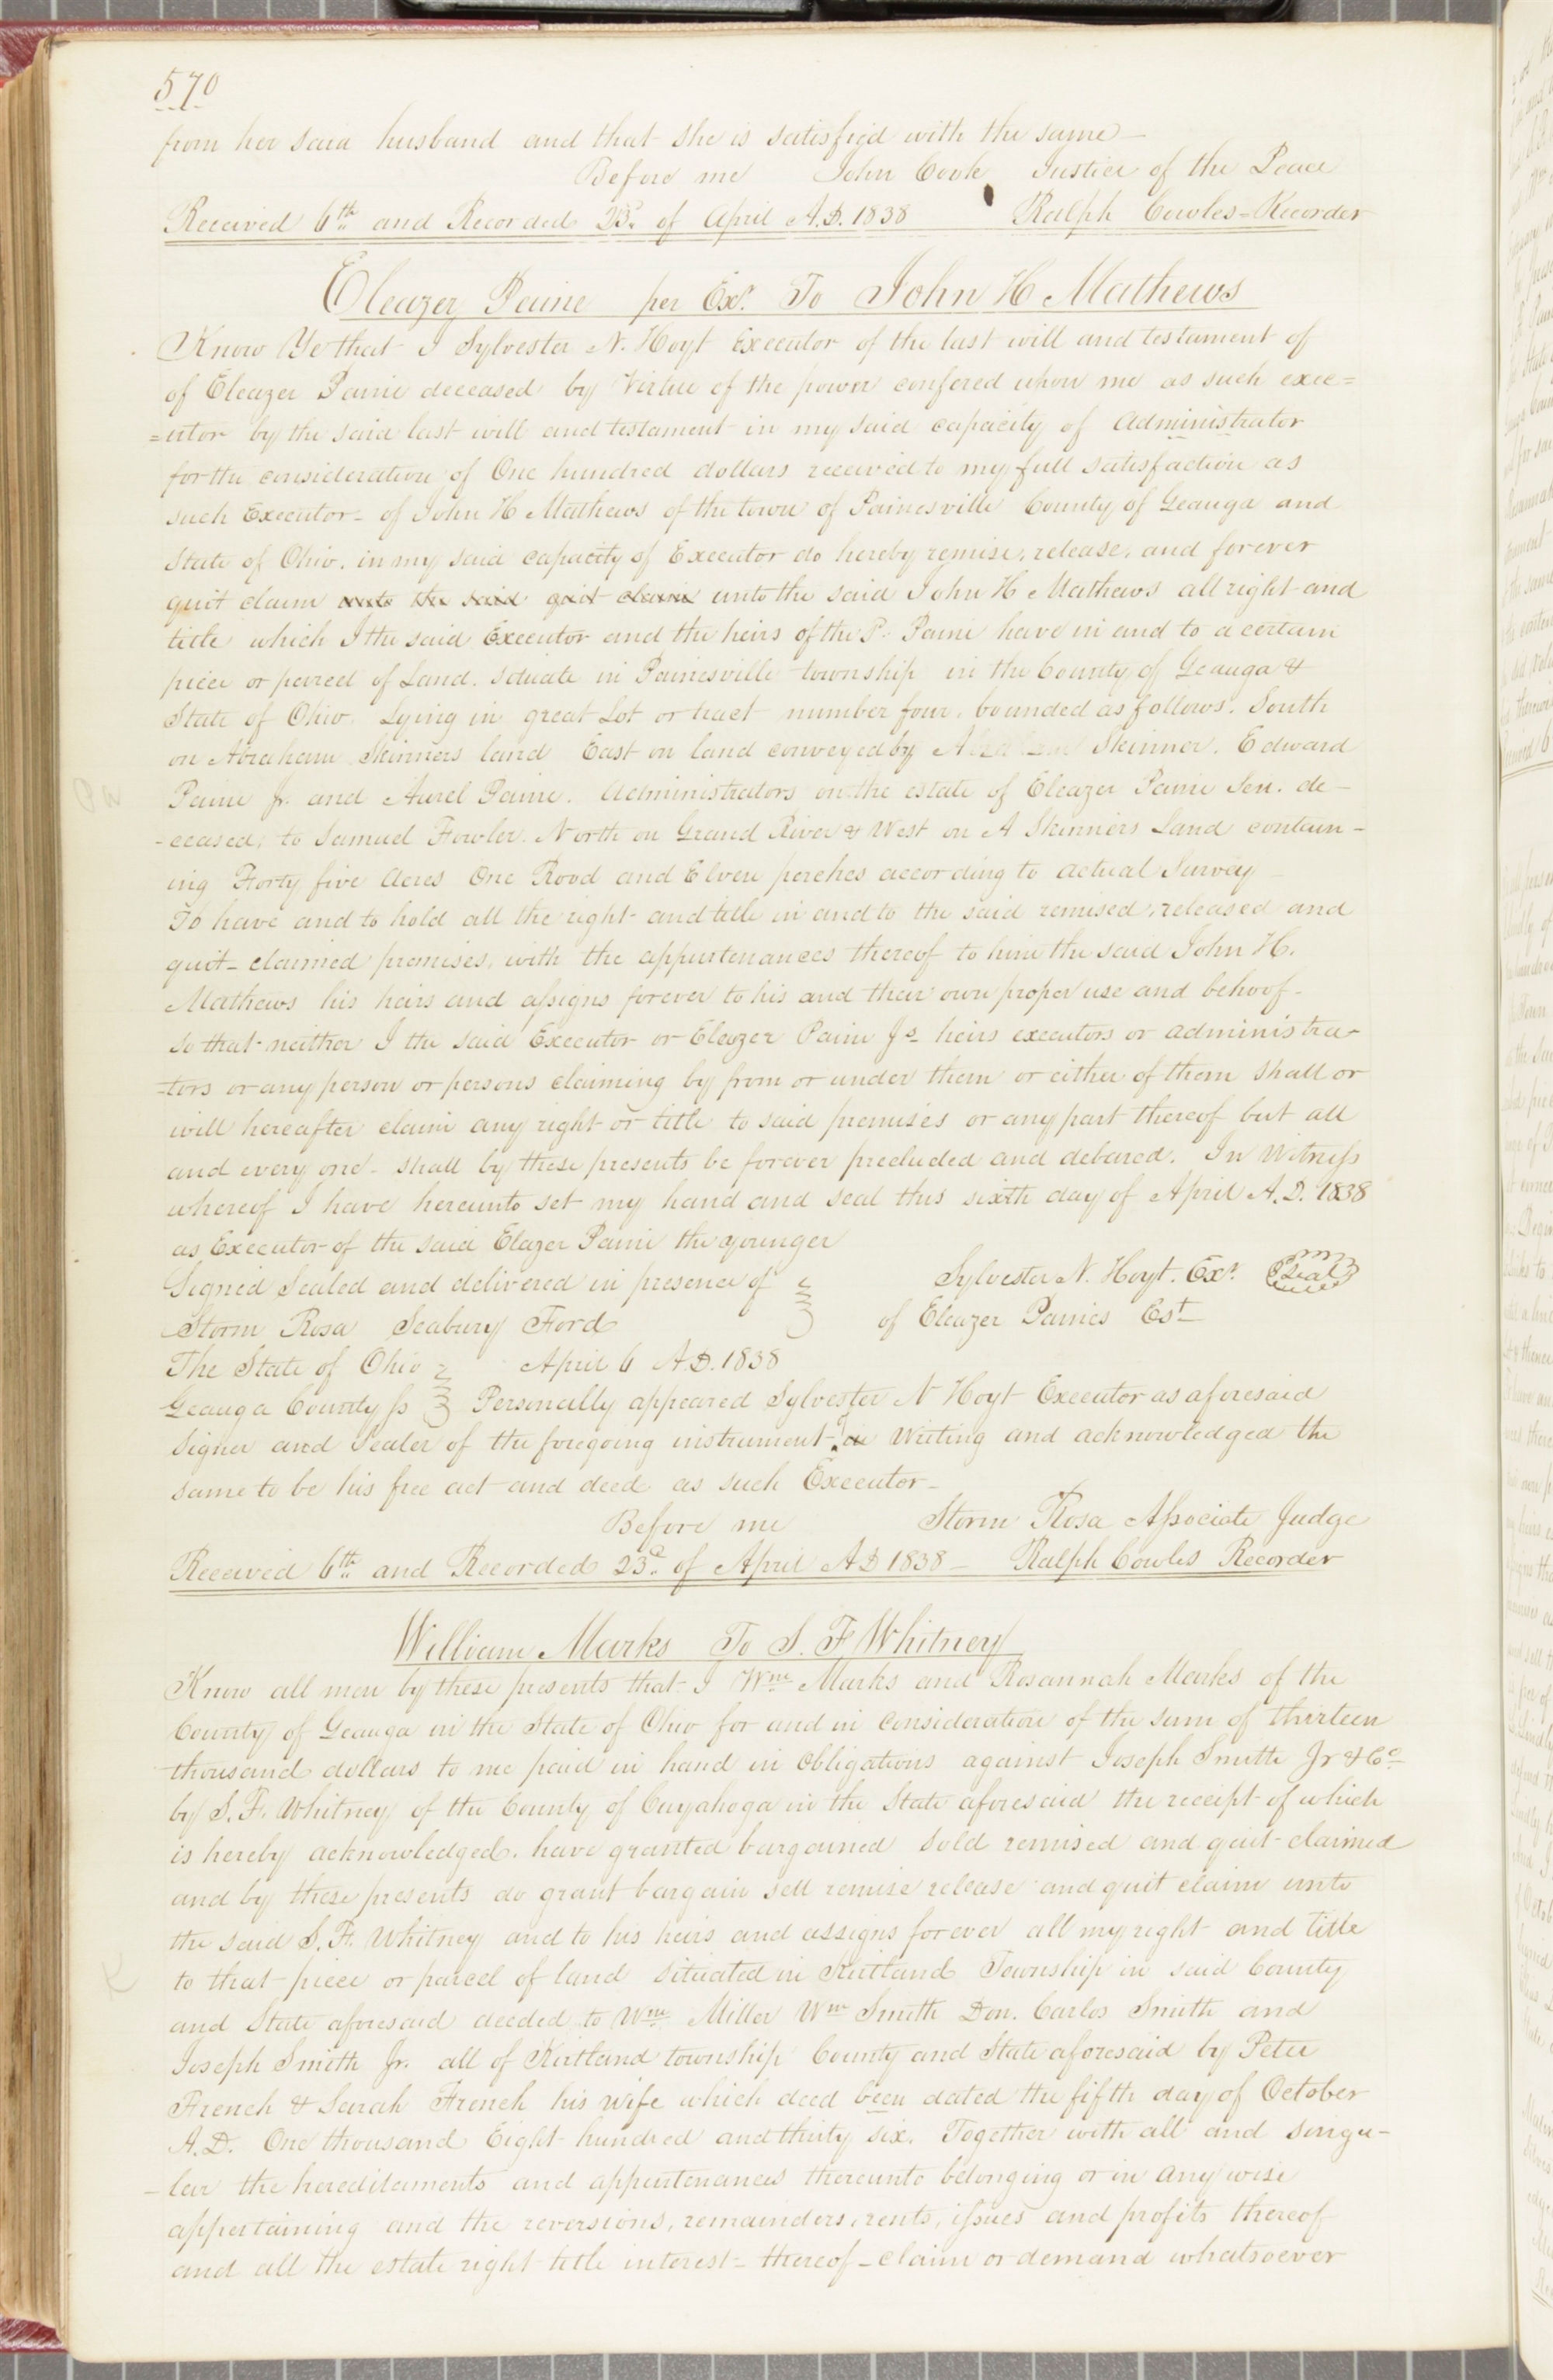 570
from her said husband and that she is satisfied with the same –
Before me John Cook Justice of the Peace
Received 6th and Recorded 23d. of April A.D. 1838 Ralph Cowles – Recorder
Eleazer Paine per Exr. To John H Mathews
Know Ye that I Sylvester N. Hoyt Executor of the last will and testament of
of Eleazer Paine deceased by Virtue of the power confered upon me as such exec=
=utor by the said last will and testament in my said capacity of Administrator
for the consideration of One hundred dollars received to my full satisfaction as
such Executor – of John H Mathews of the town of Painesville County of Geauga and
State of Ohio. in my said capacity of Executor do hereby remise, release, and forever
quit claim unto the said quit claim unto the said John H Mathews all right and
title which I the said Executor and the heirs of the P. Paine have in and to a certain
piece or parcel of Land. situate in Painesville township in the County of Geauga &
State of Ohio. Lying in great Lot or tract number four, bounded as follows. South
on Abraham Skinners land East on land conveyed by Abraham Skinner. Edward
Paine Jr. and Aurel Paine. Administrators on the estate of Eleazer Paine Sen. de –
– ceased, to Samuel Fowler. North on Grand River & West on A Skinners Land contain –
ing Forty five Acres One Rood and Elven perches according to actual Survey –
To have and to hold all the right and title in and to the said remised, released and
quit – claimed premises, with the appurtenances thereof to him the said John H.
Mathews his heirs and assigns forever to his and their own proper use and behoof –
so that neither I the said Executor or Eleazer Paine Js heirs executors or administra-
–tors or any person or persons claiming by from or under them or either of them shall or
will hereafter claim any right or title to said premises or any part thereof but all
and every one – shall by these presents be forever precluded and debared. In Witness
whereof I have hereunto set my hand and seal this sixth day of April A.D. 1838
as Executor of the said Elazer Paine the younger
Signed Sealed and delivered in presence of Sylvester N. Hoyt. Exr. Seal
Storm Rosa Seabury Ford of Eleazer Paines Est
The State of Ohio April 6 A.D. 1838
Geauga County ss Personally appeared Sylvester N Hoyt Executor as aforesaid
Signer and Sealer of the foregoing instrument Writing and acknowledged the
same to be his free act and deed as such Executor –
Before me Storm Rosa Associate Judge
Received 6th and Recorded 23d. of April AD 1838 – Ralph Cowles Recorder
William Marks To S. F Whitney
Know all men by these presents that I Wm Marks and Rosannah Marks of the
County of Geauga in the State of Ohio for and in consideration of the sum of thirteen
thousand dollars to me paid in hand in obligations against Joseph Smith Jr & Co
by S. F. Whitney of the County of Cuyahoga in the State aforesaid the receipt of which
is hereby acknowledged. have granted bargained sold remised and quit – claimed
and by these presents do grant bargain sell remise release and quit claim unto
the said S. F. Whitney and to his heirs and assigns forever all my right and title
to that piece or parcel of land situated in Kirtland Township in said County
and State aforesaid deeded to Wm Miller Wm Smith Don. Carlos Smith and
Joseph Smith Jr. all of Kirtland township County and State aforesaid by Peter
French & Sarah French his wife which deed been dated the fifth day of October
A.D. One thousand Eight hundred and thirty six. Together with all and singu –
– lar the hereditaments and appurtenances thereunto belonging or in any wise
appertaining and the reversions, remainders, rents, issues and profits thereof
and all the estate right title interest – thereof – claim or demand whatsoever